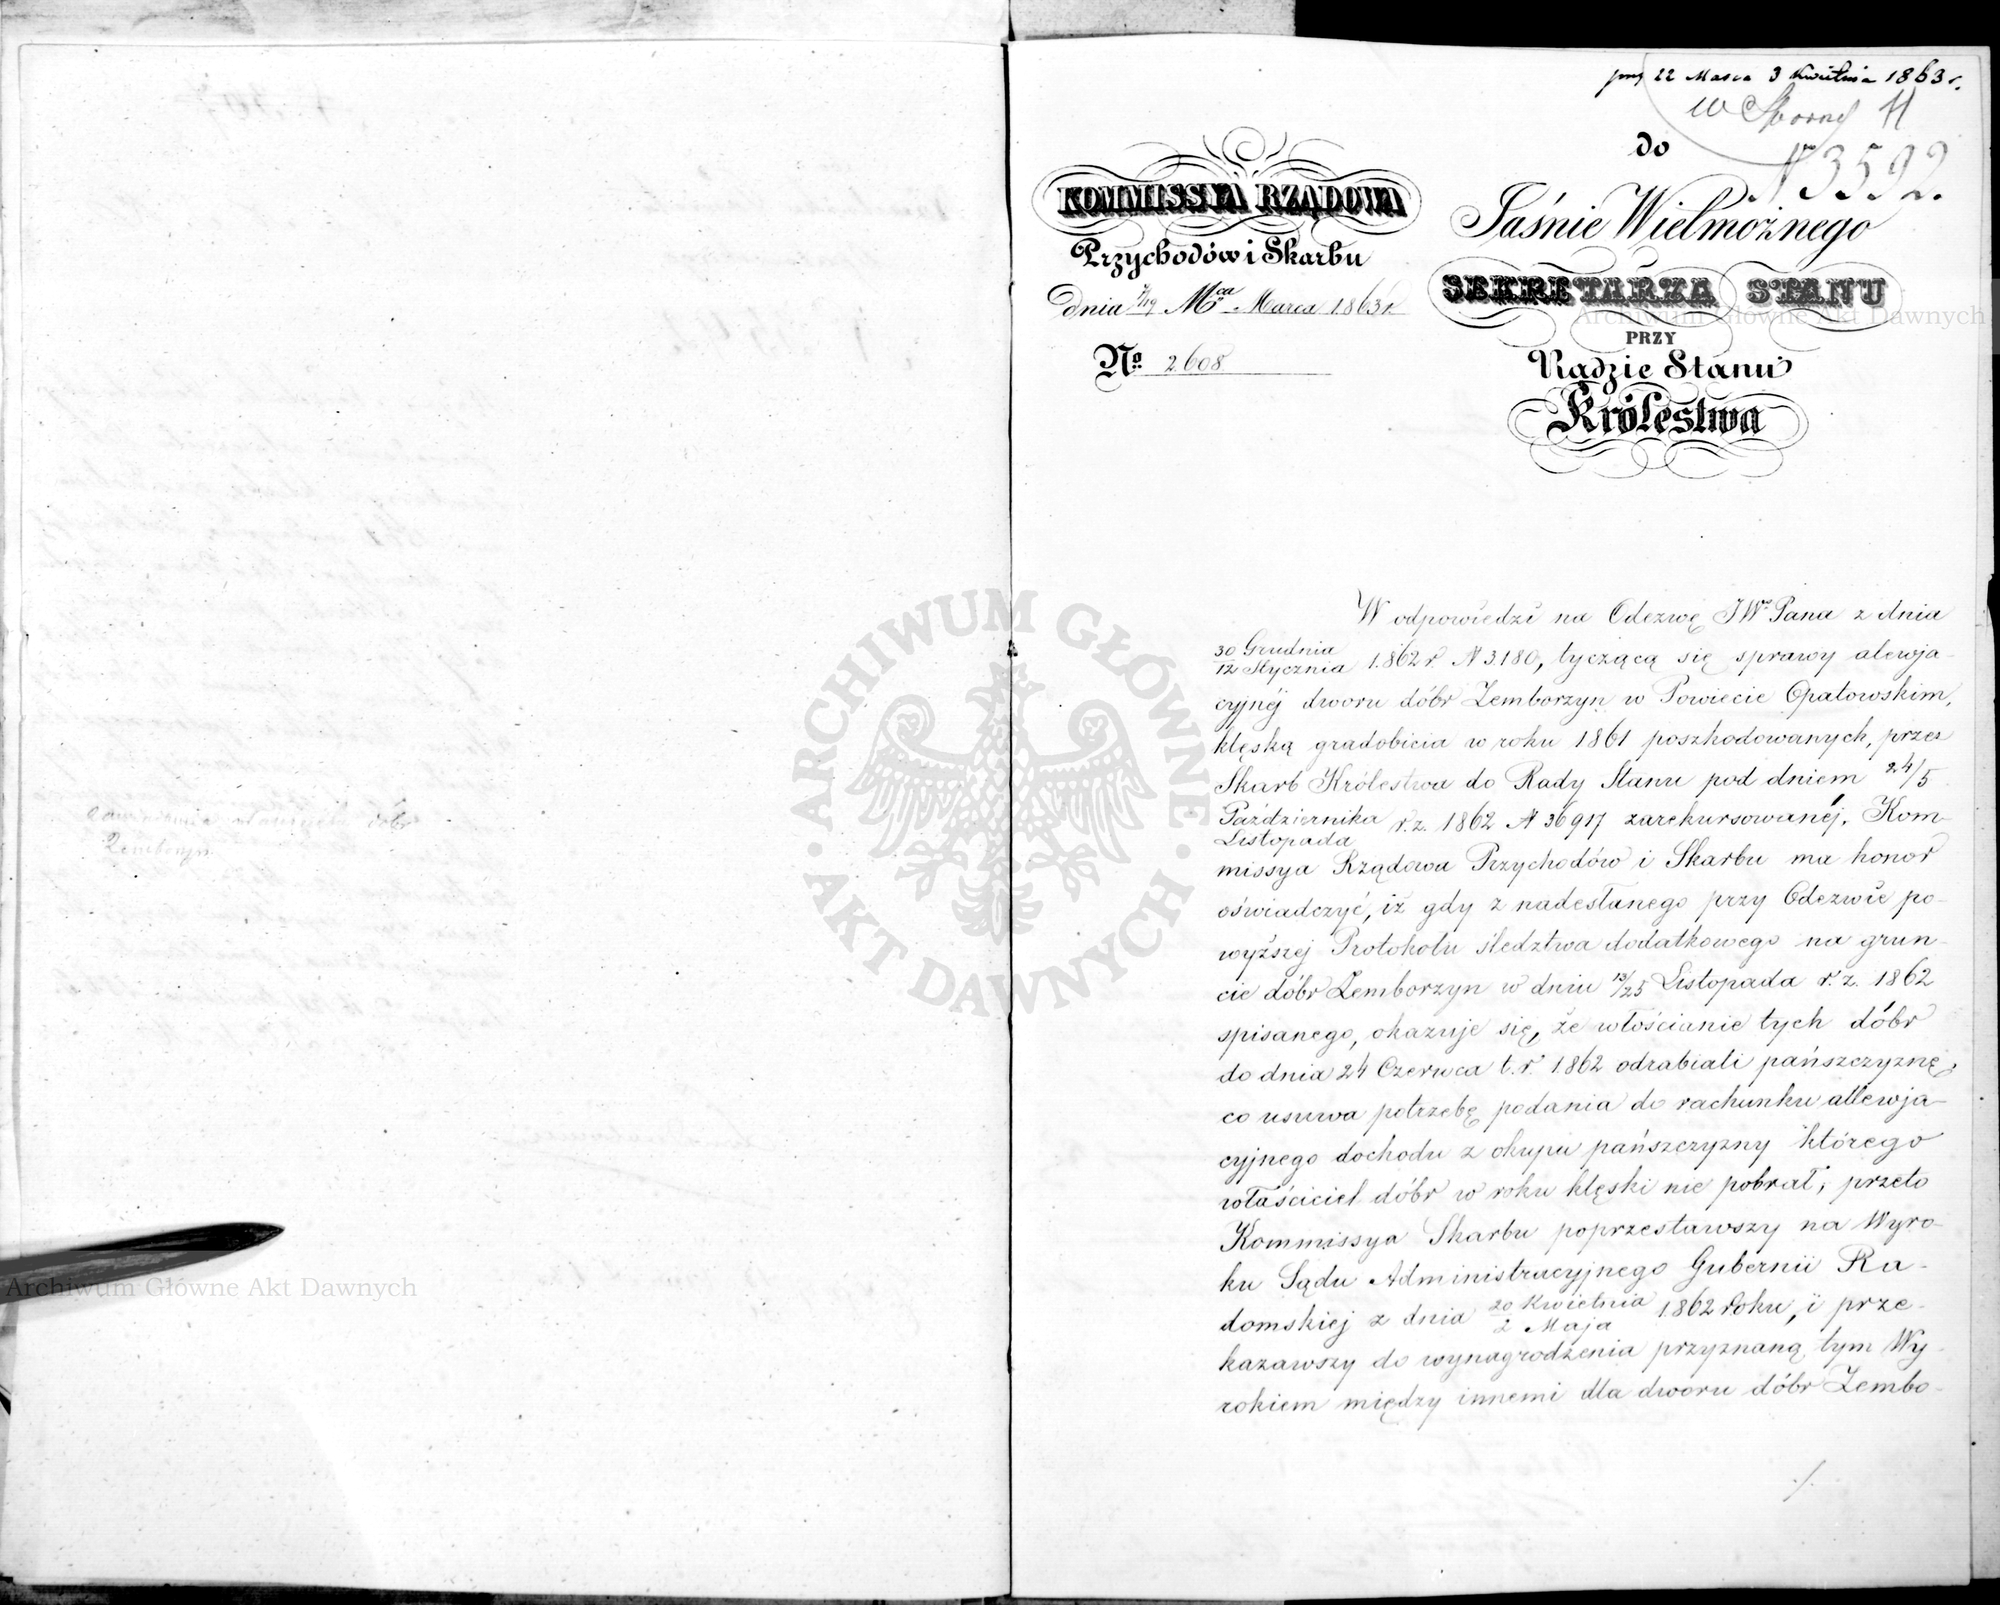 22 Marca 3 Kwietnia 1863 r.
do
N 3592.
KOMMISSYA RZĄDOWA
Przychodów i Skarbu
dnia 7/19 Mca Marca 1863 r.
No. 2608
Jaśnie Wielmożnego
SEKRETARZA STANU
PRZY
Radzie Stanu
Królestwa
W odpowiedzi na Odezwę JWo Pana z dnia
30 Grudnia
12 Stycznia 1862 r N 3.180, tyczącą się sprawy alewja-
cyjnéj dworu dóbr Zemborzyn w Powiecie Opatowskim,
klęską gradobicia w roku 1861 poszkodowanych, przez
Skarb Królestwa do Rady Stanu pod dniem 24/5
Października
Listopada r. z. 1862 N 36917 zarekursowanéj, Kom-
missya Rządowa Przychodów i Skarbu ma honor
oświadczyć, iż gdy z nadesłanego przy Odezwie po-
wyższej Protokołu śledztwa dodatkowego na grun-
cie dóbr Zemborzyn w dniu 13/25 Listopada r. z. 1862
spisanego, okazuje się, że włościanie tych dóbr
do dnia 24 Czerwca t. r. 1862 odrabiali pańszczyznę,
co usuwa potrzebę podania do rachunku allewja-
cyjnego dochodu z okupu pańszczyzny którego
właściciel dóbr w roku klęski nie pobrał, przeto
Kommissya Skarbu poprzestawszy na Wyro-
ku Sądu Administracyjnego Gubernii Ra-
domskiej z dnia 20 Kwietnia
2 Maja 1862 roku, i prze-
kazawszy do wynagrodzenia przyznaną tym Wy-
rokiem między innemi dla dworu dóbr Zembo-
./.
dóbr
Zemborzyn
ARCHIWUM GŁÓWNE
AKT DAWNYCH
Archiwum Główne Akt Dawnych
Archiwum Główne Akt Dawnych